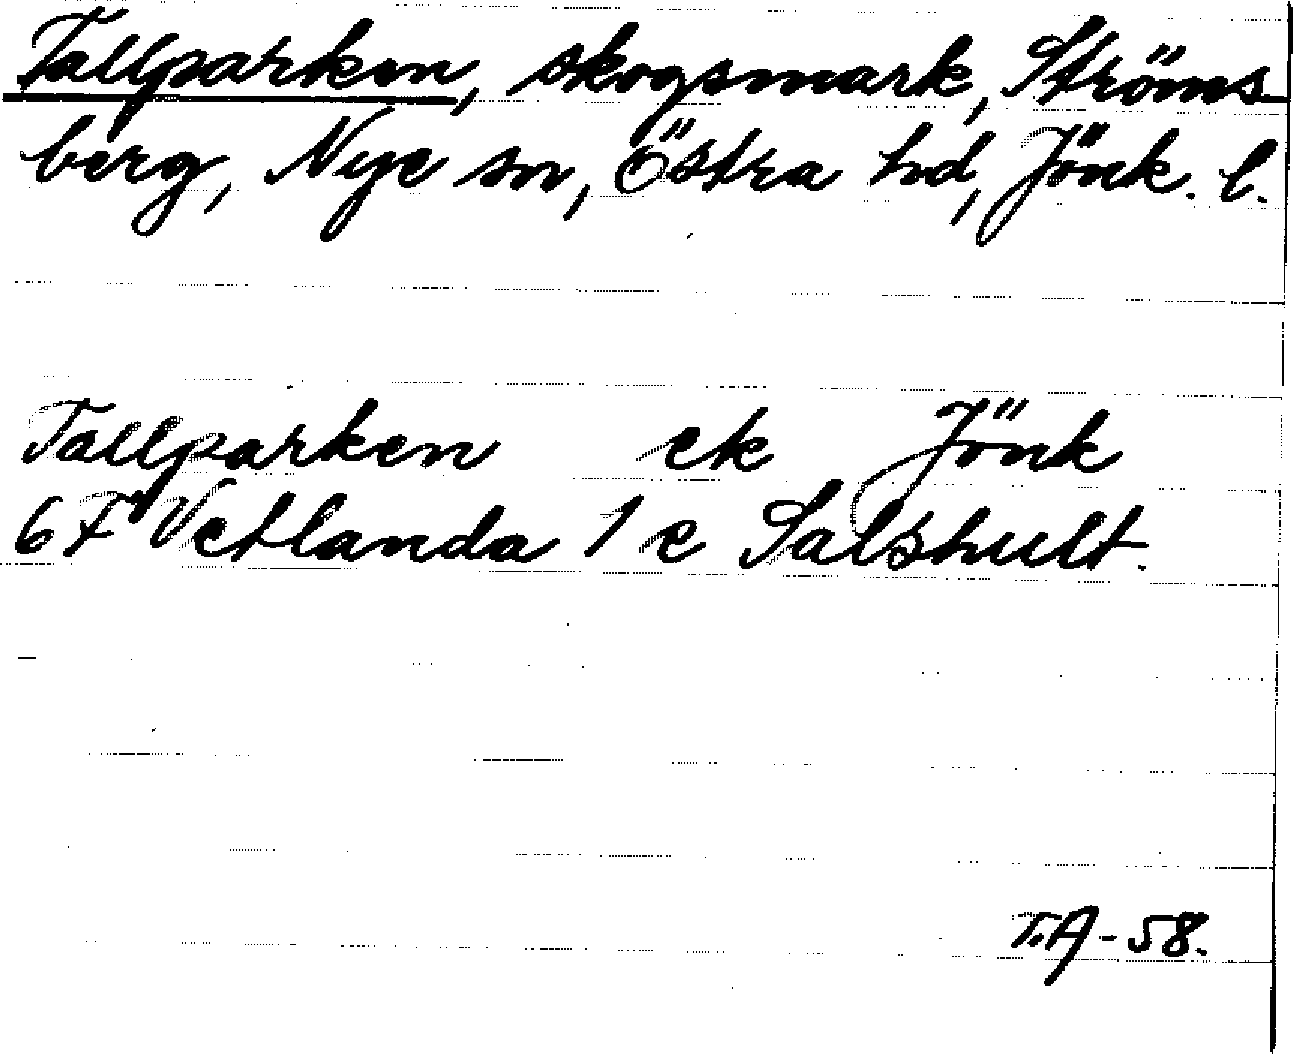 Tallparken, skogsmark, Ströms-
berg, Nye sn, Östra hd, Jönk. l.
Tallparken ek Jönk
6 F Vetlanda 1 e Salshult.
T.A-58.